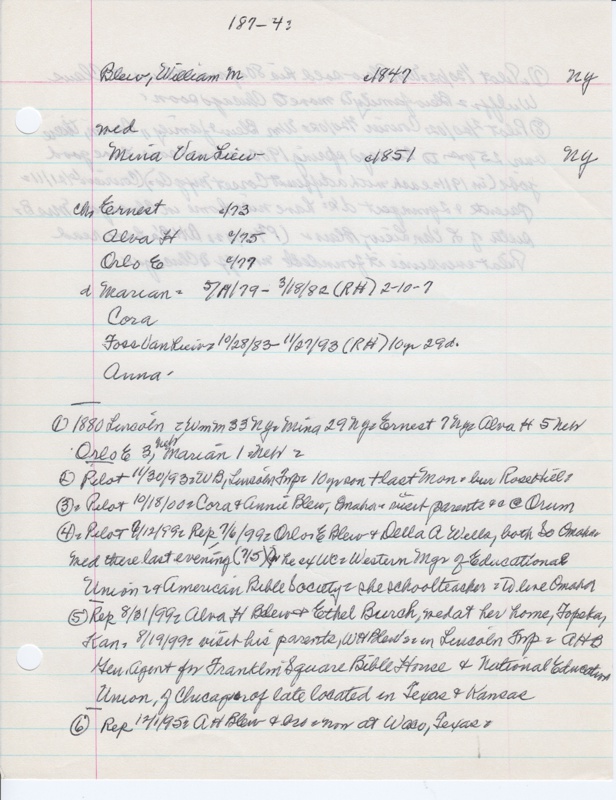 187-43
Blew, William M c1847 Ny
wed
Mina VanLiew c1851 Ny
chn Ernest c/73
Alva H c/75
Orlo E c/77
d Marian = 5/11/79 - 3/18/82 (RH) 2-10-7
Cora
Foss VanLiew = 10/28/83 - 11/27/93 (RH) 10yr 29d.
Anna
① 1880 Lincoln = Wm M 33 Ny = Mina 29 Ny = Ernest 7 Ny = Alva H 5 Nebr
Orlo E 3, Nebr Marian 1 Nebr =
② Pilot 11/30/93 = WB, Lincoln Twp = 10yr son d last Mon = bur Rosehill =
③ = Pilot 10/18/00 = Cora & Annie Blew, Omaha = visit parents & C Orum
④ = Pilot 9/12/99 = Rep 7/6/99 = Orlo E Blew & Della A Wells, both So Omaha
wed there last evening (7/5) he ex WC = Western Mgr of Educational
Union & American Bible Society = she schoolteacher = to live Omaha
⑤ Rep 8/31/99 = Alva H Blew & Ethel Burch, wed at her home, Topeka,
Kan = 8/19/99 = visit his parents, WH Blew's = in Lincoln Twp = AHB
Gen Agent for Franklin Square Bible House & National Education
Union, of Chicago = of late located in Texas & Kansas
⑥ Rep 12/1/95 = AH Blew & now at Waco, Texas =